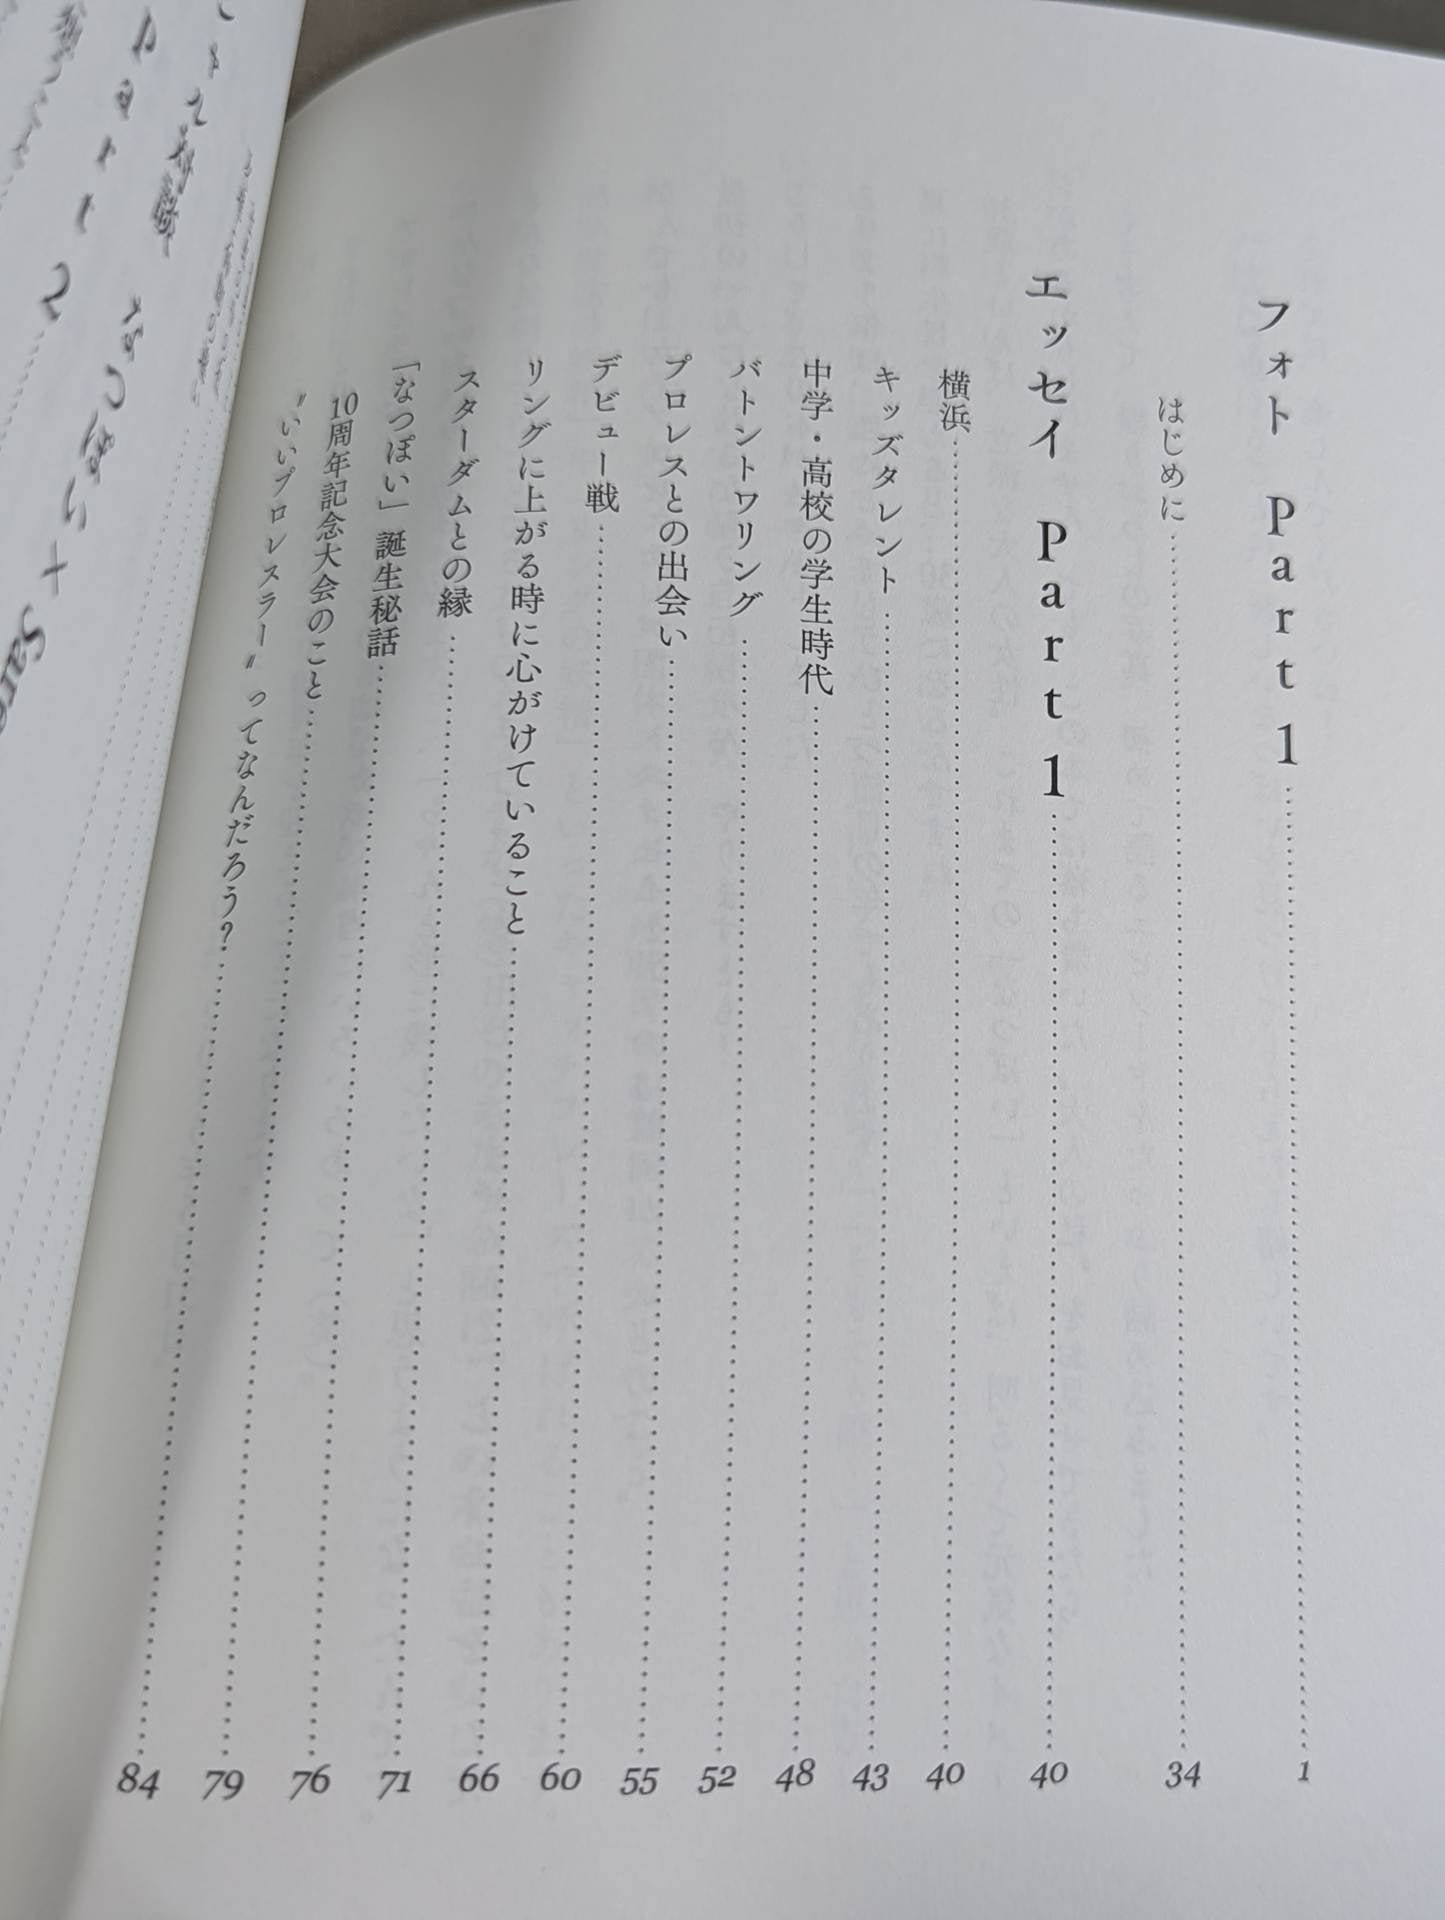 フォト Part 1……1
はじめに……34
エッセイ Part 1……40
横浜……40
キッズタレント……43
中学・高校の学生時代……48
バトントワリング……52
プロレスとの出会い……55
デビュー戦……60
リングに上がる時に心がけていること……66
スターダムとの縁……71
「なつぽい」誕生秘話……76
10周年記念大会のこと……79
〝いいプロレスラー〟ってなんだろう?……84
なつぽい+Sare